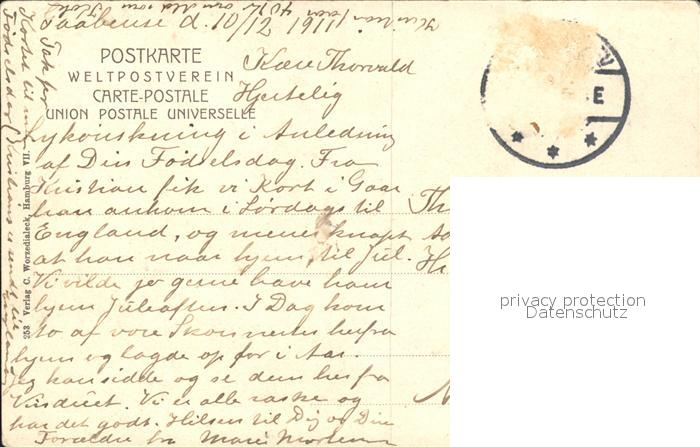 Taabense d. 10/12 1911
POSTKARTE
WELTPOSTVEREIN
CARTE-POSTALE
UNION POSTALE UNIVERSELLE
Kære Thorvald
Hjertelig
Lykønskning i Anledning
af Din Fødselsdag. Fra
Kristian fik vi Kort i Gaar
han ankom i Lørdags til
England, og mener knapt
at han naar hjem til Jul.
Vi vilde jo gerne have ham
hjem Juleaften. I Dag kom
to af vore Skonnerter herfra
hjem og lagde op for i Aar.
Jeg kan sidde og se dem her fra
Vinduet. Vi er alle raske og
har det godt. Hilsen til Dig og Dine
Forældre fra Marie Mortensen
Tak for
Kortet til min
Fødselsdag
253 Verlag C. Worzedialeck, Hamburg VII.
Th
He
E
privacy protection
Datenschutz